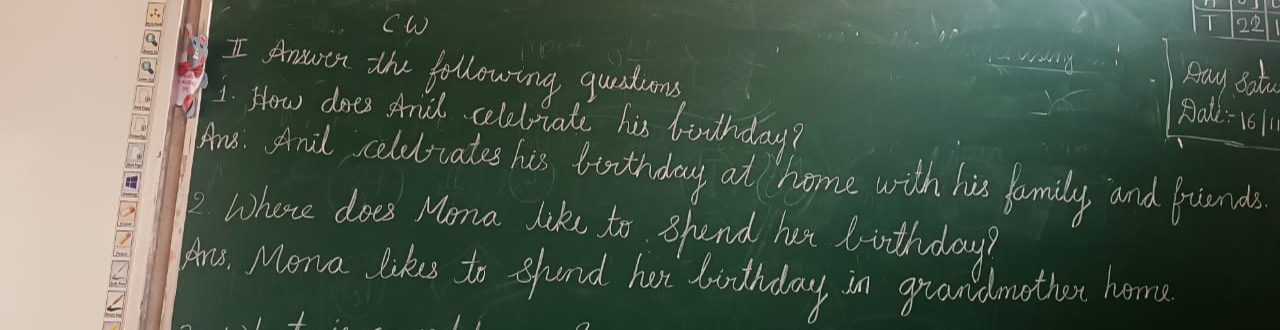 CW
II Answer the following questions
1. How does Anil celebrate his birthday?
Ans: Anil celebrates his birthday at home with his family and friends.
2. Where does Mona like to spend her birthday?
Ans. Mona likes to spend her birthday in grandmother home.
T 22
Day Satu
Date:- 16/11